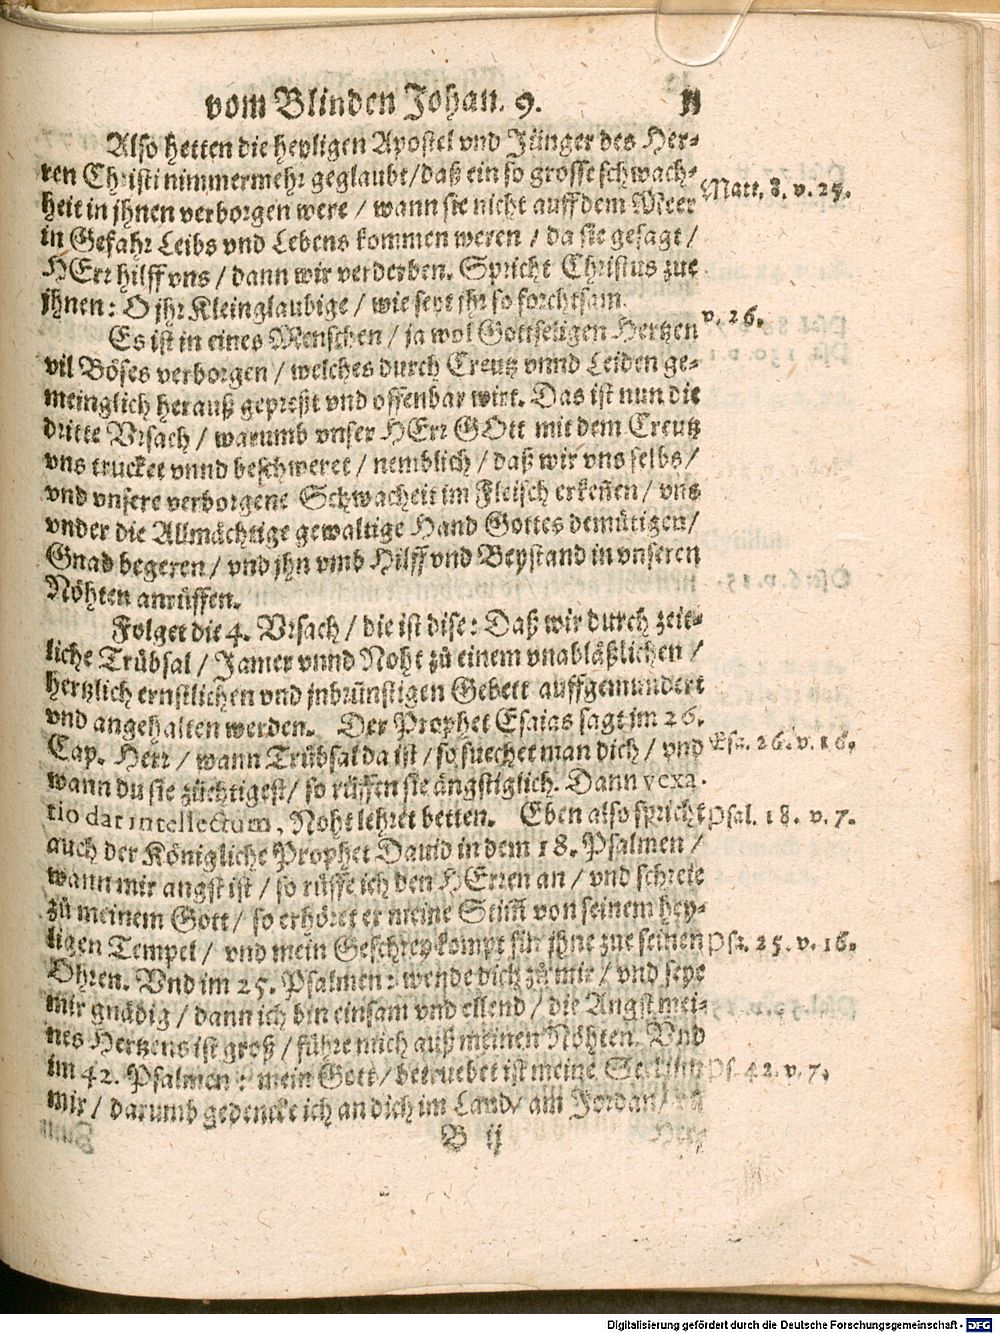 vom Blinden Johan. 9. 11
Also hetten die heyligen Apostel vnd Jünger des Her-
ren Christi nimmermehr geglaubt/ daß ein so grosse schwach-
Matt. 8. v. 25.
heit in jhnen verborgen were / wann sie nicht auff dem Meer
in Gefahr Leibs vnd Lebens kommen weren / da sie gesagt /
HErr hilff vns / dann wir verderben. Spricht Christus zue
jhnen: O jhr Kleinglaubige / wie seyt jhr so forchtsam.
v. 26.
Es ist in eines Menschen / ja wol Gottseligen Hertzen
vil Böses verborgen / welches durch Creutz vnnd Leiden ge-
meinglich herauß gepreßt vnd offenbar wirt. Das ist nun die
dritte Vrsach / warumb vnser HErr GOtt mit dem Creutz
vns trucket vnnd beschweret / nemblich / daß wir vns selbs /
vnd vnsere verborgene Schwacheit im Fleisch erkeñen / vns
vnder die Allmächtige gewaltige Hand Gottes demütigen/
Gnad begeren / vnd jhn vmb Hilff vnd Beystand in vnseren
Nöhten anrüffen.
Folget die 4. Vrsach / die ist dise: Daß wir durch zeit-
liche Trübsal / Jamer vnnd Noht zů einem vnabläßlichen /
hertzlich ernstlichen vnd jnbrünstigen Gebett auffgemundert
vnd angehalten werden. Der Prophet Esaias sagt im 26.
Cap. Herr / wann Trübsal da ist / so suechet man dich / vnd
Esa. 26. v. 16.
wann du sie züchtigest/ so rüffen sie ängstiglich. Dann vexa-
tio dat intellectum, Noht lehret betten. Eben also spricht
Psal. 18. v. 7.
auch der Königliche Prophet Dauid in dem 18. Psalmen /
wann mir angst ist / so rüffe ich den HErren an / vnd schreie
zů meinem Gott / so erhöret er meine Stiṁ von seinem hey-
ligen Tempel / vnd mein Geschrey kompt für jhne zue seinen
Ps. 25. v. 16.
Ohren. Vnd im 25. Psalmen: wende dich zů mir / vnd seye
mir gnädig / dann ich bin einsam vnd ellend / die Angst mei-
nes Hertzens ist groß / führe mich auß meinen Nöhten. Vnd
im 42. Psalmen: mein Gott/ betruebet ist meine Seel in
Ps. 42. v. 7.
mir / darumb gedencke ich an dich im Land/ am Jordan/
B ij
Digitalisierung gefördert durch die Deutsche Forschungsgemeinschaft - DFG